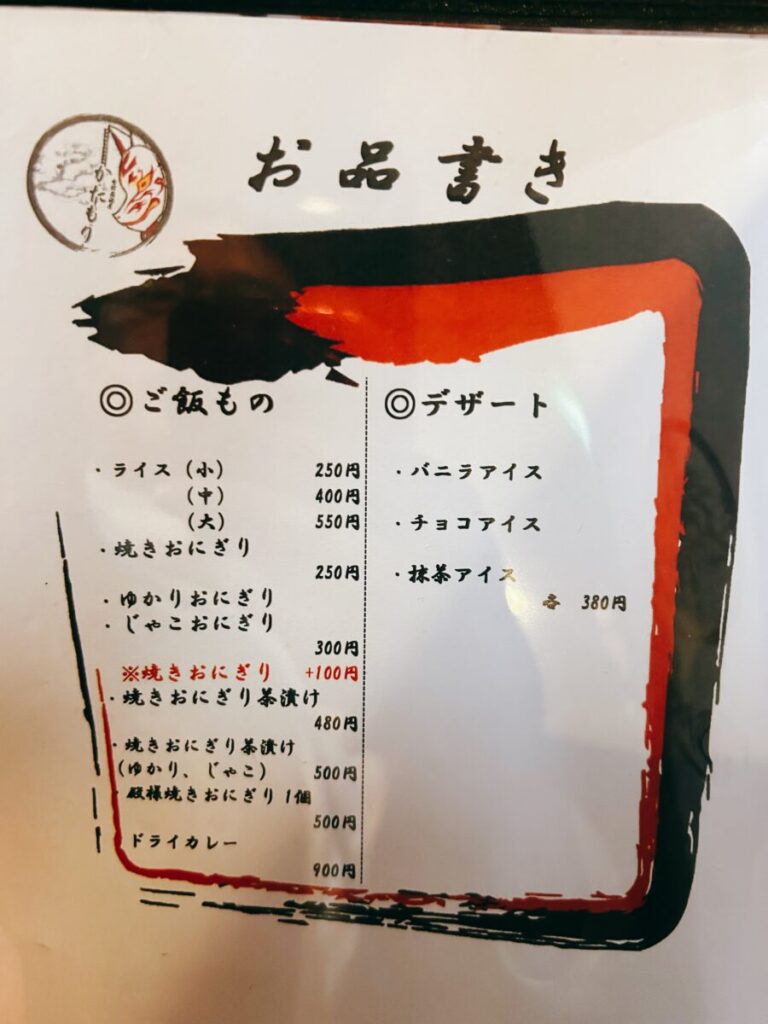 かたもり
お品書き
◎ご飯もの
・ライス（小） 250円
（中） 400円
（大） 550円
・焼きおにぎり
250円
・ゆかりおにぎり
・じゃこおにぎり
300円
※焼きおにぎり +100円
・焼きおにぎり茶漬け
480円
・焼きおにぎり茶漬け
（ゆかり、じゃこ） 500円
・殿様焼きおにぎり1個
500円
ドライカレー
900円
◎デザート
・バニラアイス
・チョコアイス
・抹茶アイス
各 380円